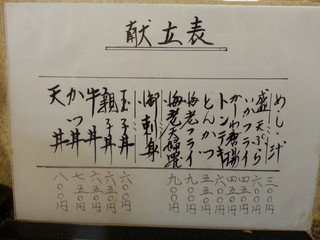 献立表
めし・汁 三〇〇円
盛天ぷら 六〇〇円
いかフライ 四五〇円
かしわ唐揚 四五〇円
トンテキ 六〇〇円
とんかつ 五五〇円
海老フライ 九〇〇円
海老天婦羅 九〇〇円
御刺身
玉子丼 六〇〇円
親子丼 六五〇円
牛丼 六五〇円
かつ丼 七五〇円
天丼 八〇〇円